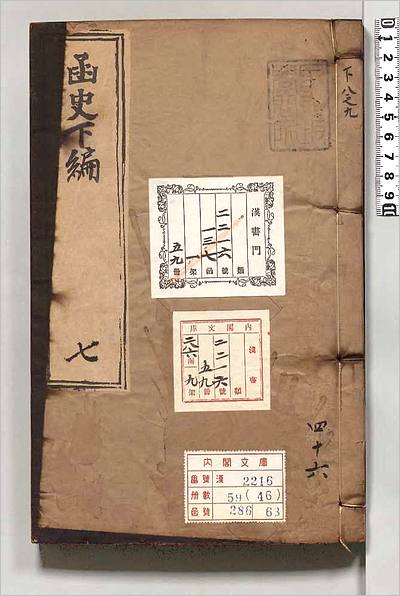 函史下編
七
下 八之九
漢書門
類
二二一六 號
一三七 函
一 架
五九 冊
內閣文庫
漢書
類
二二一六 號
五九 冊
二八六 函
九 架
四十六
內閣文庫
番號 漢 2216
冊數 59(46)
函號 286 63
0 1 2 3 4 5 6 7 8 9 10